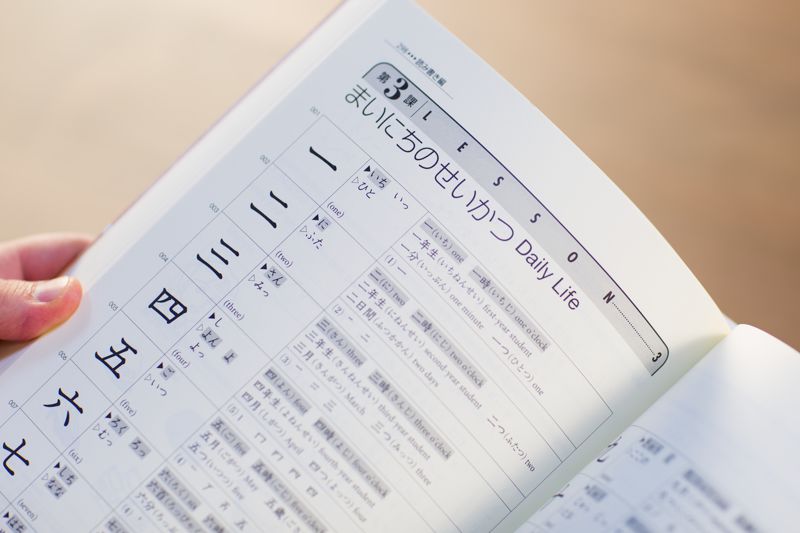 298●●●読み書き編
第3課 LESSON 3
まいにちのせいかつ Daily Life
001
一
▶いち いっ
▷ひと
(one)
一(いち) one 一時(いちじ) one o'clock
一年生(いちねんせい) first-year student
一分(いっぷん) one minute 一つ(ひとつ) one
(1) 一
002
二
▶に
▷ふた
(two)
二(に) two 二時(にじ) two o'clock
二年生(にねんせい) second-year student
二日間(ふつかかん) two days 二つ(ふたつ) two
(2) 一 二
003
三
▶さん
▷みっ
(three)
三(さん) three 三時(さんじ) three o'clock
三年生(さんねんせい) third-year student
三月(さんがつ) March 三つ(みっつ) three
(3) 一 二 三
004
四
▶し
▷よん よ
よっ
(four)
四(よん) four 四時(よじ) four o'clock
四年生(よねんせい) fourth-year student
四月(しがつ) April 四つ(よっつ) four
005
五
▶ご
▷いつ
(five)
五(ご) five
五月(ごがつ) May
五つ(いつつ) five
006
六
▶ろく ろっ
▷むっ
(six)
007
七
▶しち
▷なな
(seven)
▶はち